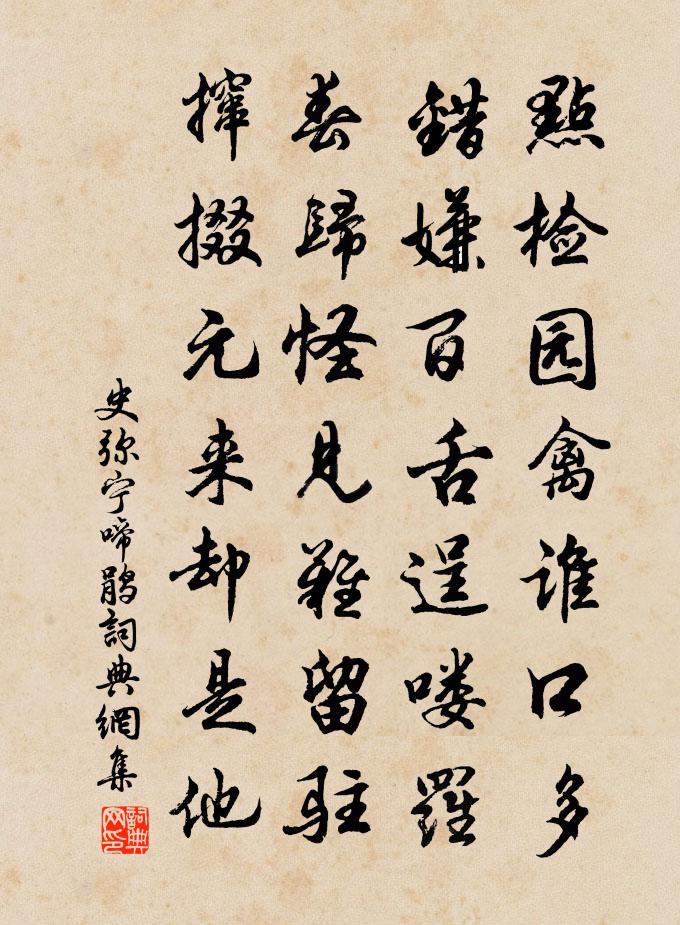 點检园禽谁口多
錯嫌百舌逞喽羅
春歸怪見難留駐
撺掇元来却是他
史弥宁啼鹃詞典網集
詞典网印